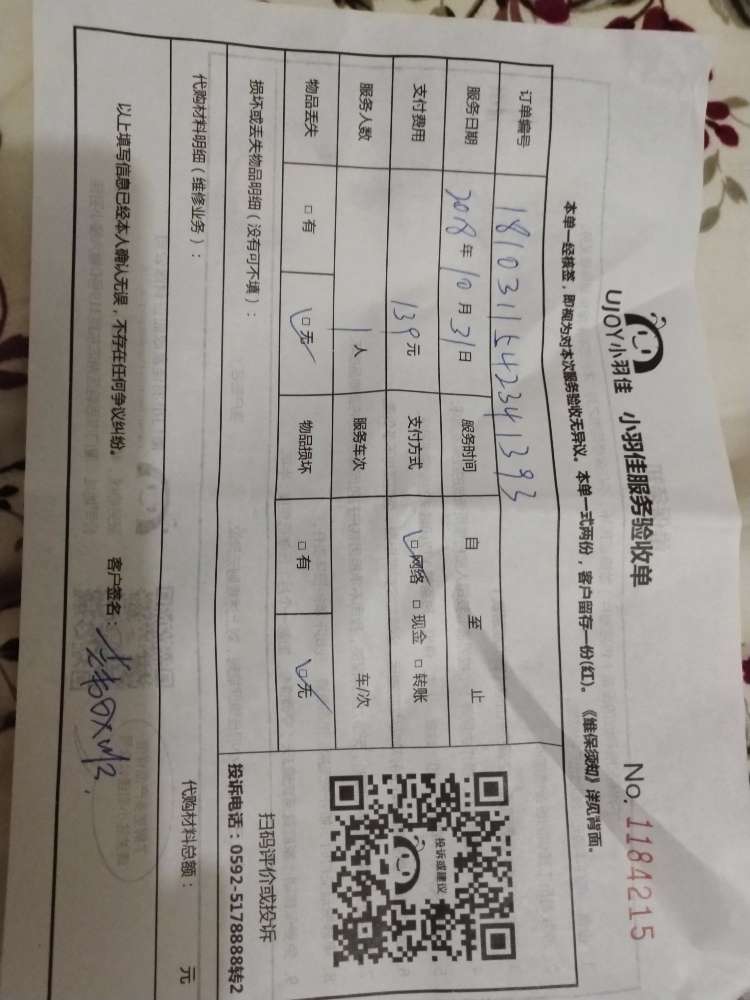 UJOY小羽佳 小羽佳服务验收单 No. 1184215
本单一经核签，即视为对本次服务验收无异议。本单一式两份，客户留存一份(红)。《维保须知》详见背面。
订单编号 1810311542341393
服务日期 2018年10月31日 服务时间 自 至 止
支付费用 139元 支付方式 ☑网络 □现金 □转账
服务人数 1人 服务车次 车/次
物品丢失 □有 ☑无 物品损坏 □有 ☑无
投诉或建议
扫码评价或投诉
投诉电话：0592-5178888转2
损坏或丢失物品明细（没有可不填）：
代购材料明细（维修业务）： 代购材料总额： 元
以上填写信息已经本人确认无误，不存在任何争议纠纷。 客户签名：